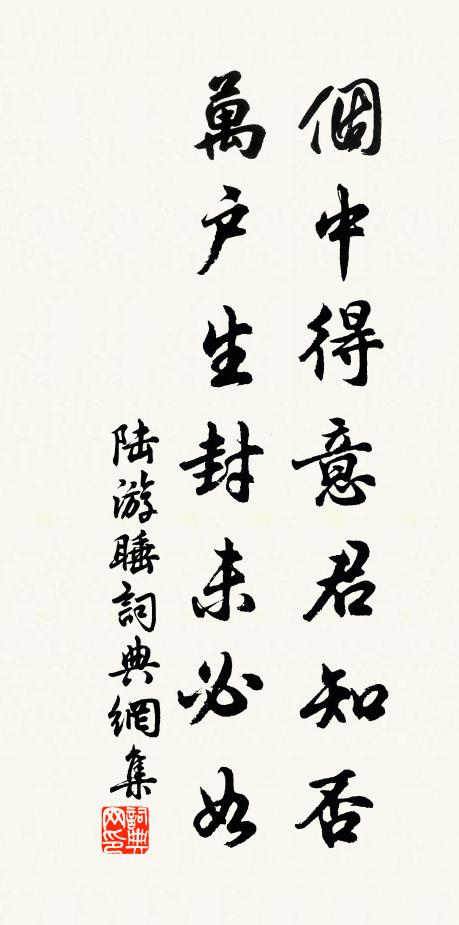 個中得意君知否
萬户生封未必如
陆游睡詞典網集
詞典网印